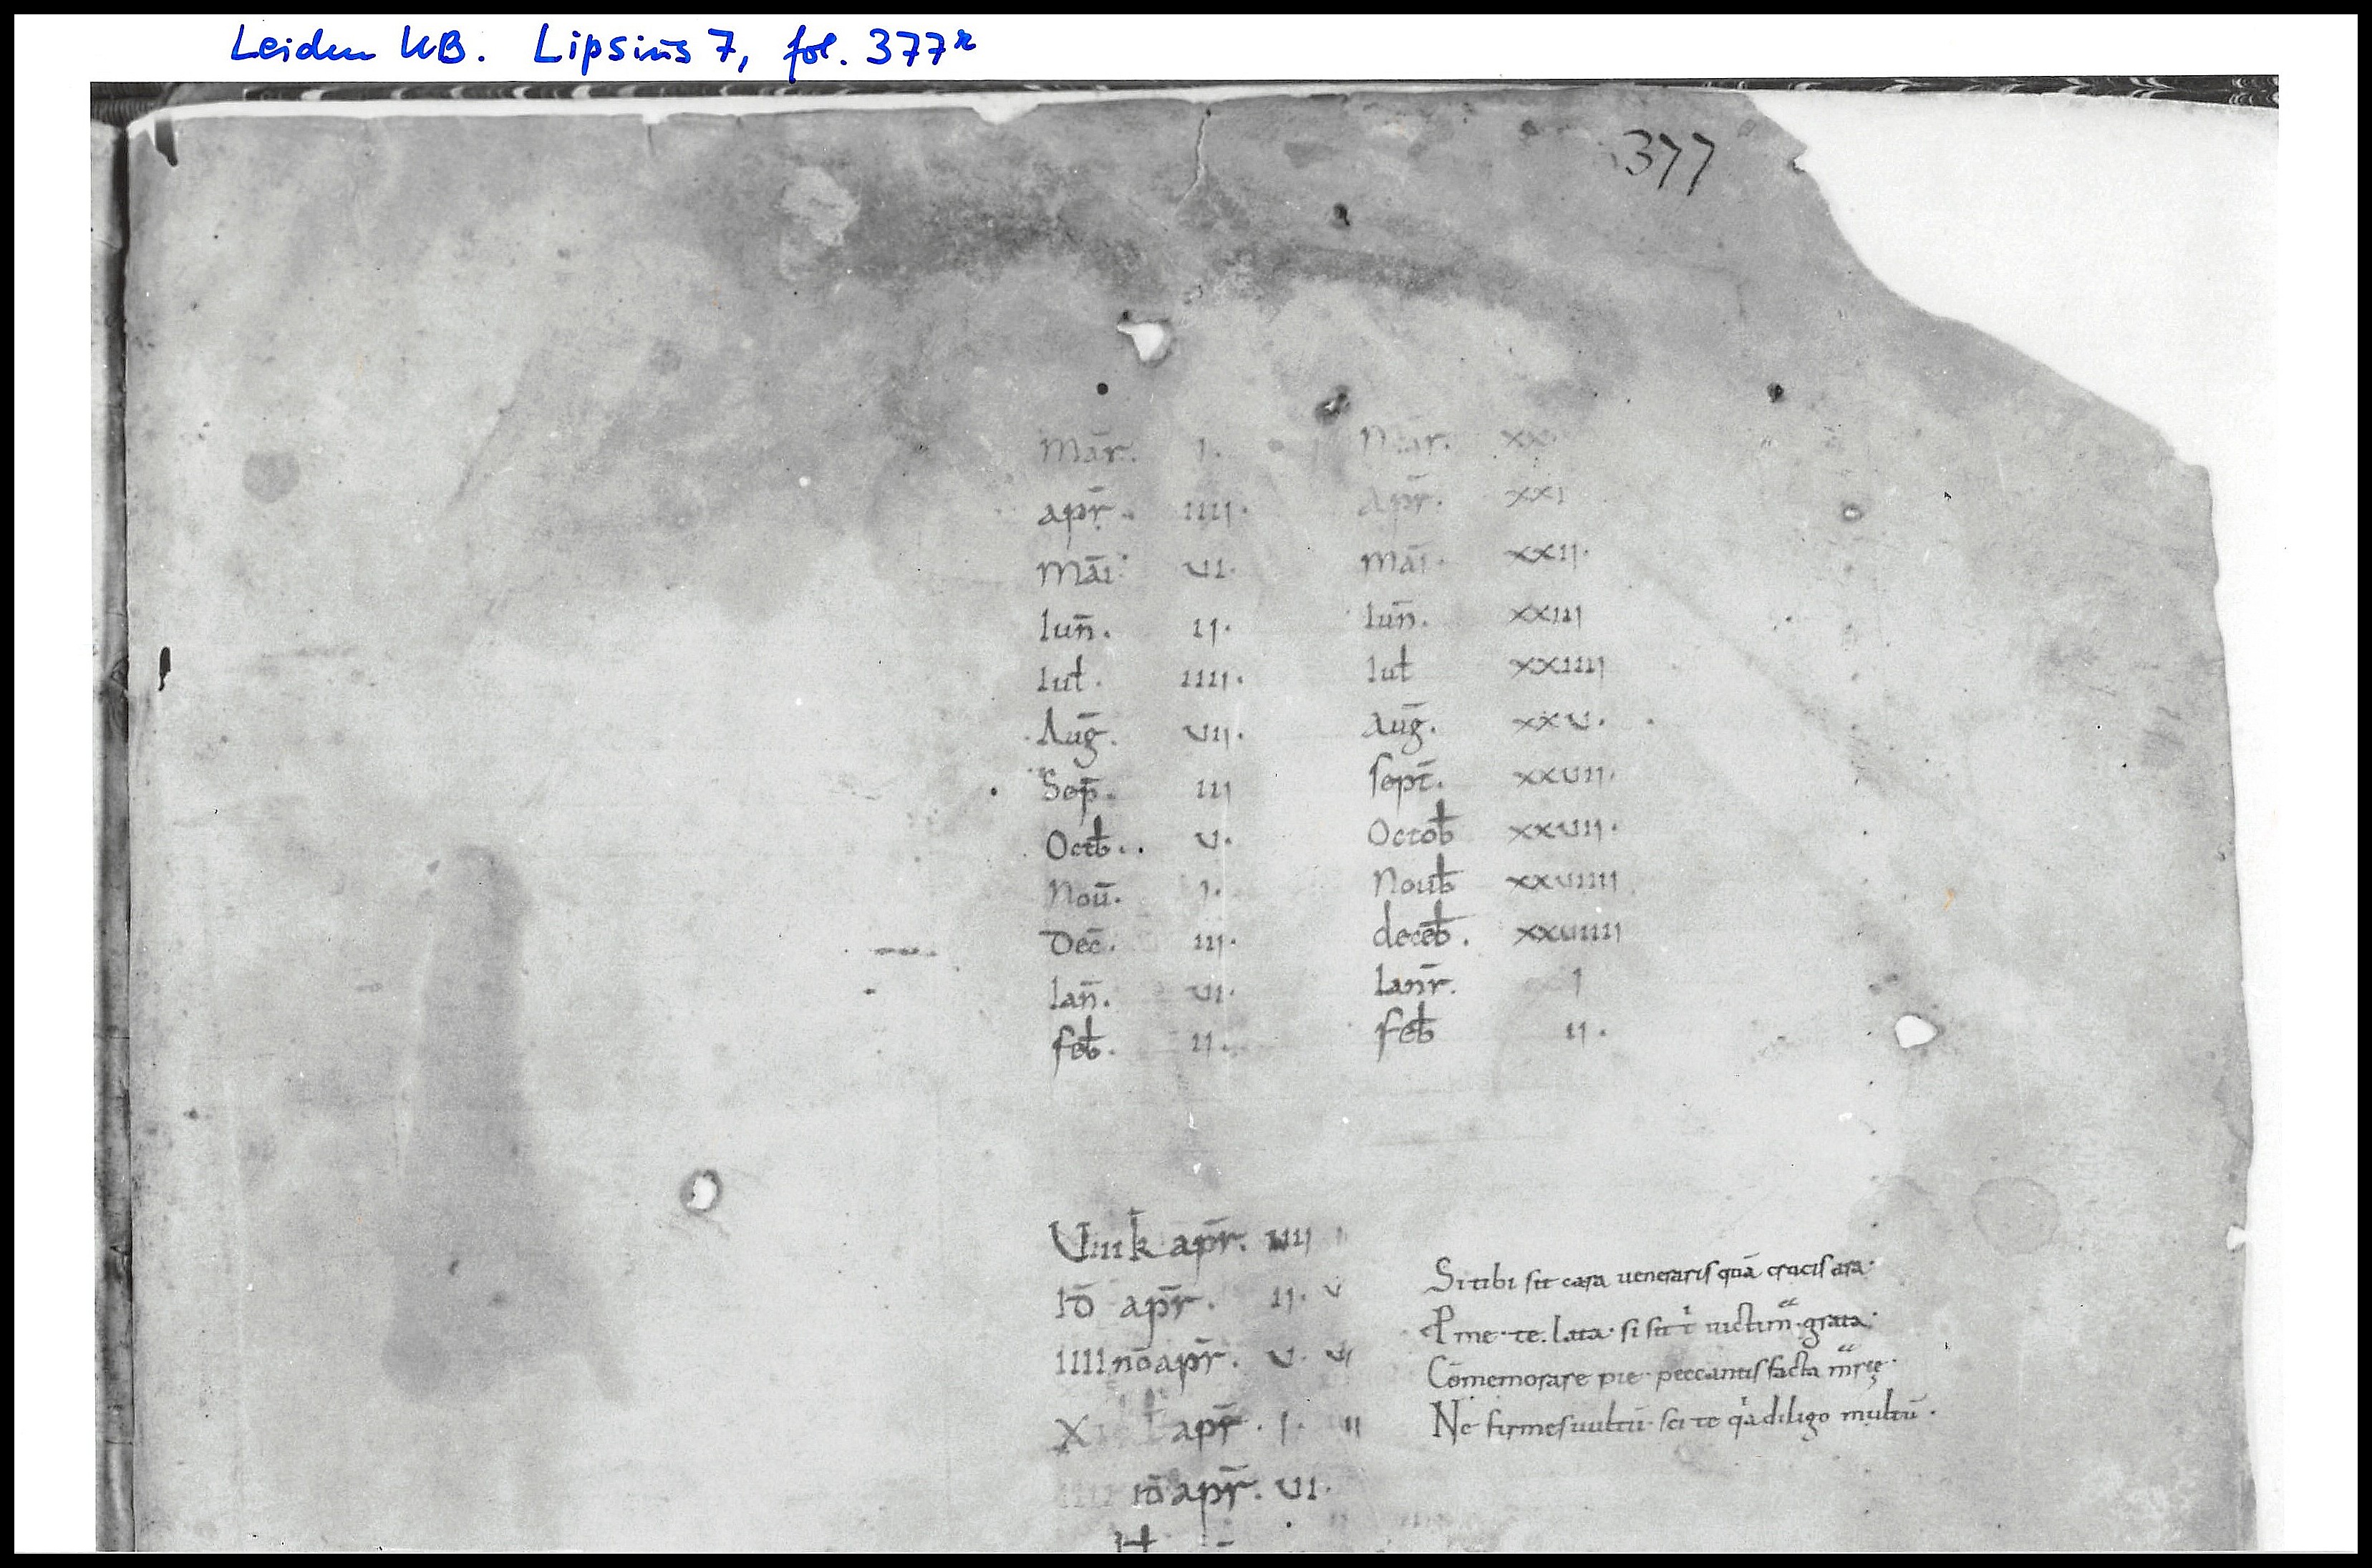 Leiden UB. Lipsius 7, fol. 377r
377
Mar̄. I. Mar. XX
apr̄. IIII. apr̄. XXI
Māi. VI. Māi. XXII.
Iun̄. II. Iun̄. XXIII
Iuƚ. IIII. Iuƚ XXIIII
Auḡ. VII. Auḡ. XXV.
Sep̄. III Sept̄. XXVII.
Octƀ.. V. Octoƀ XXVII.
Noū. I. Nouƀ XXVIIII
Dec̄. III. decēƀ. XXVIIII
Ian̄. VI. Ianr̄. I
feƀ. II. feƀ II.
VIII k apr̄. IIII
ID̄ apr̄. II. V
IIII nō apr̄. V. VI
X apr̄. I. II
IIII ID̄ apr̄. VI.
Si tibi sit cara ueneraris quā crucis ara.
P me. te. lata. si sit ı̇ uictim̄. grata.
Cōmemorare pie. peccantis facta mr̄ę.
Ne firmes uultū. sci te qͥa diligo multū.